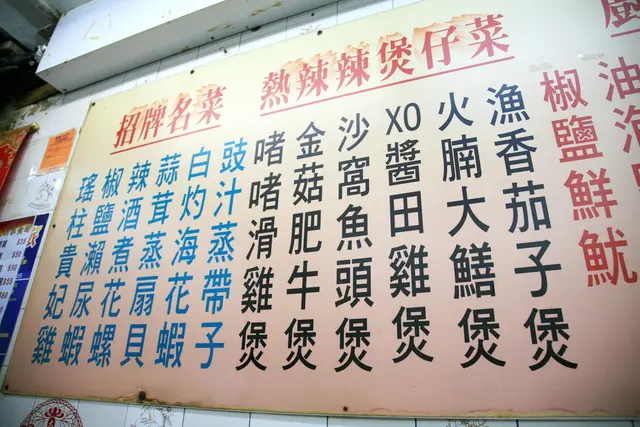 招牌名菜
豉汁蒸帶子
白灼海花蝦
蒜茸蒸扇貝
辣酒煮花螺
椒鹽瀨尿蝦
瑤柱貴妃雞
熱辣辣煲仔菜
漁香茄子煲
火腩大鱔煲
XO醬田雞煲
沙窩魚頭煲
金菇肥牛煲
啫啫滑雞煲
廚
油
椒鹽鮮魷